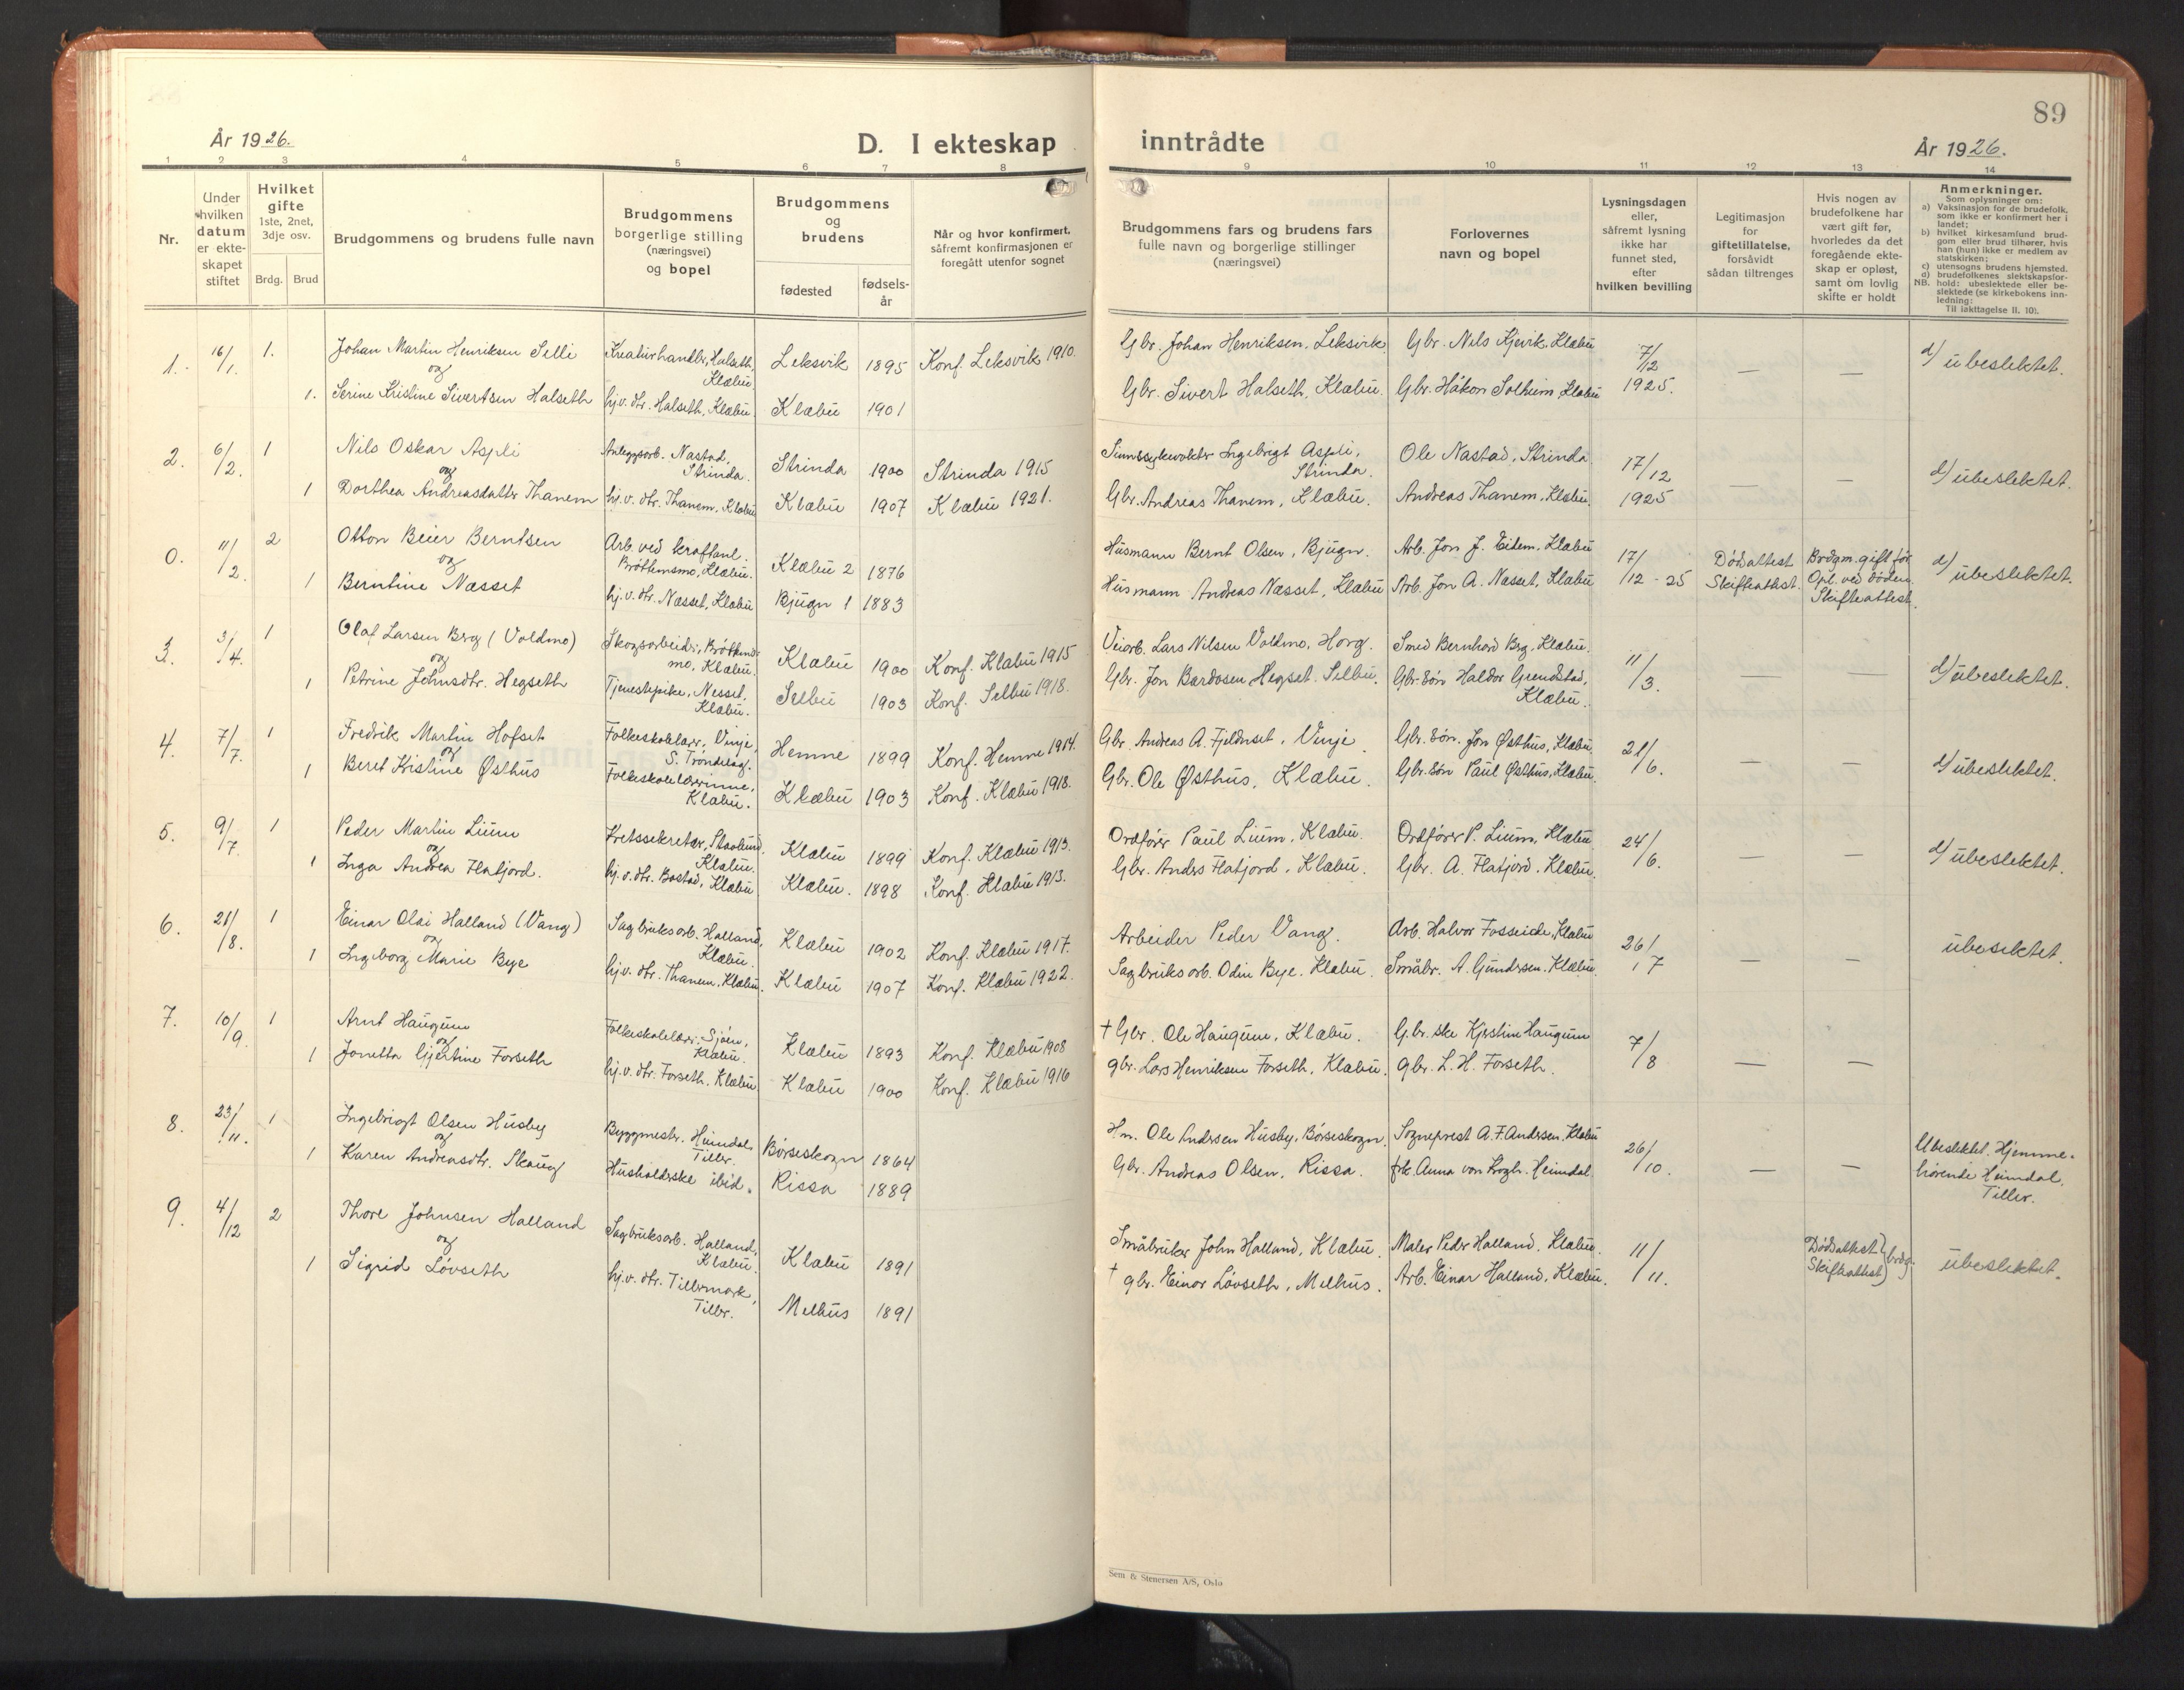 89
År 1926.
D. I ekteskap
inntrådte
År 1926.
1 2 3 4 5 6 7 8 9 10 11 12 13 14
Nr.
Under hvilken datum er ekteskapet stiftet
Hvilket gifte
1ste, 2net, 3dje osv.
Brdg. Brud
Brudgommens og brudens fulle navn
Brudgommens borgerlige stilling (næringsvei) og bopel
Brudgommens og brudens
fødested
fødselsår
Når og hvor konfirmert, såfremt konfirmasjonen er foregått utenfor sognet
Brudgommens fars og brudens fars fulle navn og borgerlige stillinger (næringsvei)
Forlovernes navn og bopel
Lysningsdagen eller, såfremt lysning ikke har funnet sted, efter hvilken bevilling
Legitimasjon for giftetillatelse, forsåvidt sådan tiltrenges
Hvis nogen av brudefolkene har vært gift før, hvorledes da det foregående ekteskap er opløst, samt om lovlig skifte er holdt
Anmerkninger.
Som oplysninger om:
a) Vaksinasjon for de brudefolk, som ikke er konfirmert her i landet;
b) hvilket kirkesamfund brudgom eller brud tilhører, hvis han (hun) ikke er medlem av statskirken;
c) utensogns brudens hjemsted.
d) brudefolkenes slektskapsforhold: ubeslektede eller beslektede (se kirkebokens innledning:
NB. Til iakttagelse II. 10).
1. 16/1. 1. Johan Martin Henriksen Selli Kreaturhandler, Halseth, Klæbu. Leksvik 1895 Konf. Leksvik 1910. Gbr. Johan Henriksen, Leksvik. Gbr. Nils Kjevik, Klæbu 7/12 1925. — — d/ ubeslektet.
og
1. Serine Kristine Sivertsen Halseth hj.v. dtr. Halseth, Klæbu Klæbu 1901 Gbr. Sivert Halseth, Klæbu. Gbr. Håkon Solheim, Klæbu
2. 6/2. 1 Nils Oskar Aspli Anleggsarb. Nastad, Strinda. Strinda 1900 Strinda 1915 Sinnssykevokter Ingebrigt Aspli, Strinda. Ole Nastad, Strinda 17/12 1925 — — d/ ubeslektet.
og
1 Dorthea Andreasdatter Thanem hj.v. dtr. Thanem, Klæbu Klæbu 1907 Klæbu 1921. Gbr. Andreas Thanem, Klæbu. Andreas Thanem, Klæbu.
0. 11/2. 2 Otton Beier Berntsen Arb. ved kraftanl. Brøttemsmo, Klæbu. Klæbu 2 1876 Husmann Bernt Olsen, Bjugn. Arb. Jon J. Eidem, Klæbu 17/12 - 25 Dødsattest Skifteattest. Brdgm. gift før Opl. ved døden. Skifteattest. d/ ubeslektet.
og
1 Berntine Næsset hj.v. dtr. Næsset, Klæbu Bjugn 1 1883 Husmann Andreas Næsset, Klæbu Arb. Jon A. Næsset, Klæbu
3. 3/4. 1 Olaf Larsen Berg (Voldmo) Skogsarbeider, Brøttemsmo, Klæbu. Klæbu 1900 Konf. Klæbu 1915 Veiarb. Lars Nilsen Voldmo, Horg. Smed Bernhard Berg, Klæbu. 11/3. — — d/ ubeslektet.
og
1 Petrine Johnsdtr. Hegseth Tjenestepike, Nesset, Klæbu. Selbu 1903 Konf. Selbu 1918. Gbr. Jon Bardosen Hegset, Selbu. Gbr. søn Haldor Grendstad, Klæbu.
4. 7/7. 1 Fredrik Martin Hofset Folkeskolelærer, Vinje, S. Trøndelag. Hemne 1899 Konf. Hemne 1914. Gbr. Andreas A. Fjeldnset, Vinje Gbr. søn. Jon Østhus, Klæbu. 21/6. — — d/ ubeslektet.
og
1 Beret Kristine Østhus Folkeskolelærerinne, Klæbu. Klæbu 1903 Konf. Klæbu 1918. Gbr. Ole Østhus, Klæbu. Gbr. søn Paul Østhus, Klæbu.
5. 9/7. 1 Peder Martin Lium Kretssekretær, Klæbu. Klæbu 1899 Konf. Klæbu 1913. Ordfører Paul Lium, Klæbu. Ordfører P. Lium, Klæbu 24/6. — — d/ ubeslektet.
og
1 Inga Andrea Flatjord. hj.v. dtr. Bostad, Klæbu Klæbu. 1898 Konf. Klæbu 1913. Gbr. Anders Flatjord, Klæbu. Gbr. A. Flatjord, Klæbu.
6. 21/8. 1 Einar Olai Halland (Vang) Sagbruksarb. Halland, Klæbu. Klæbu 1902 Konf. Klæbu 1917. Arbeider Peder Vang. Arb. Halvor Fosseide, Klæbu 26/7 — — ubeslektet.
og
1 Ingeborg Marie Bye hj.v. dtr. Thanem, Klæbu. Klæbu 1907 Konf. Klæbu 1922. Sagbruksarb. Odin Bye, Klæbu. Småbr. A. Gundersen, Klæbu.
7. 10/9. 1 Arnt Haugum Folkeskolelærer, Sjøen, Klæbu. Klæbu 1893 Konf. Klæbu 1908 † Gbr. Ole Haugum, Klæbu. Gbr. ske Kjerstine Haugum 7/8 — —
og
1 Jonetta Gjertine Forseth hj.v. dtr. Forseth, Klæbu Klæbu 1900 Konf. Klæbu 1916 gbr. Lars Henriksen Forseth, Klæbu. gbr. L. H. Forseth.
8. 23/11. 1 Ingebrigt Olsen Husby Byggmester, Heimdal, Tiller. Børseskogn 1864 Hm. Ole Andersen Husby, Børseskogn. Sogneprest A. F. Andersen, Klæbu 26/10. — — Ubeslektet. Hjemmehørende Heimdal, Tiller.
og
1 Karen Andreasdtr. Skaug Husholderske ibid. Rissa 1889 Gbr. Andreas Olsen, Rissa. frk. Anna von Krogh, Heimdal.
9. 4/12 2 Thore Johnsen Halland Sagbruksarb. Halland, Klæbu. Klæbu 1891 Småbruker John Halland, Klæbu. Maler Peder Halland, Klæbu. 11/11. Dødsattest Skifteattest } brdg. ubeslektet.
og
1 Sigrid Løvseth hj.v. dtr. Tillermark, Tiller. Melhus 1891 † gbr. Einar Løvseth, Melhus. Arb. Einar Halland, Klæbu.
Sem & Stenersen A/S, Oslo